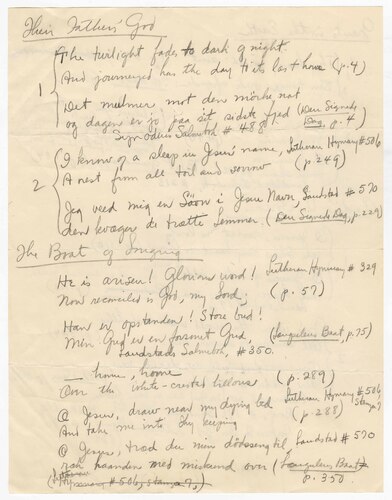 Their Fathers' God
The twilight fades to dark of night
And journeyed has the day to its last hour (p. 4)
1
Det mulmer mot den mörke nat
og dagen er jo paa sit sidste fjed (Den Signede Dag, p. 4)
Salmebok # 488
I know of a sleep in Jesus' name, Lutheran Hymnary #506
2
A rest from all toil and sorrow (p. 249)
Jeg veed mig en Sövn i Jesu Navn, Landstad # 570
den kvæger de trætte Lemmer (Den Signede Dag, p. 229)
The Boat of Longing
He is arisen! Glorious word! Lutheran Hymnary # 329
Now reconciled is God, my Lord; (p. 57)
Han er opstanden! Store bud!
Min Gud er en forsonet Gud, (Længselens Baat, p. 75)
Landstads Salmebok, # 350.
— home, home
Over the white-crested billows (p. 289)
O Jesus, draw near my dying bed Lutheran Hymnary #506
And take me into thy keeping (p. 288)
O Jesus, træd du min dödsseng til, Landstad # 570
ræk haanden med miskund over (Længselens Baat
p. 350.
(Hymnary # 506, stanza 7,)